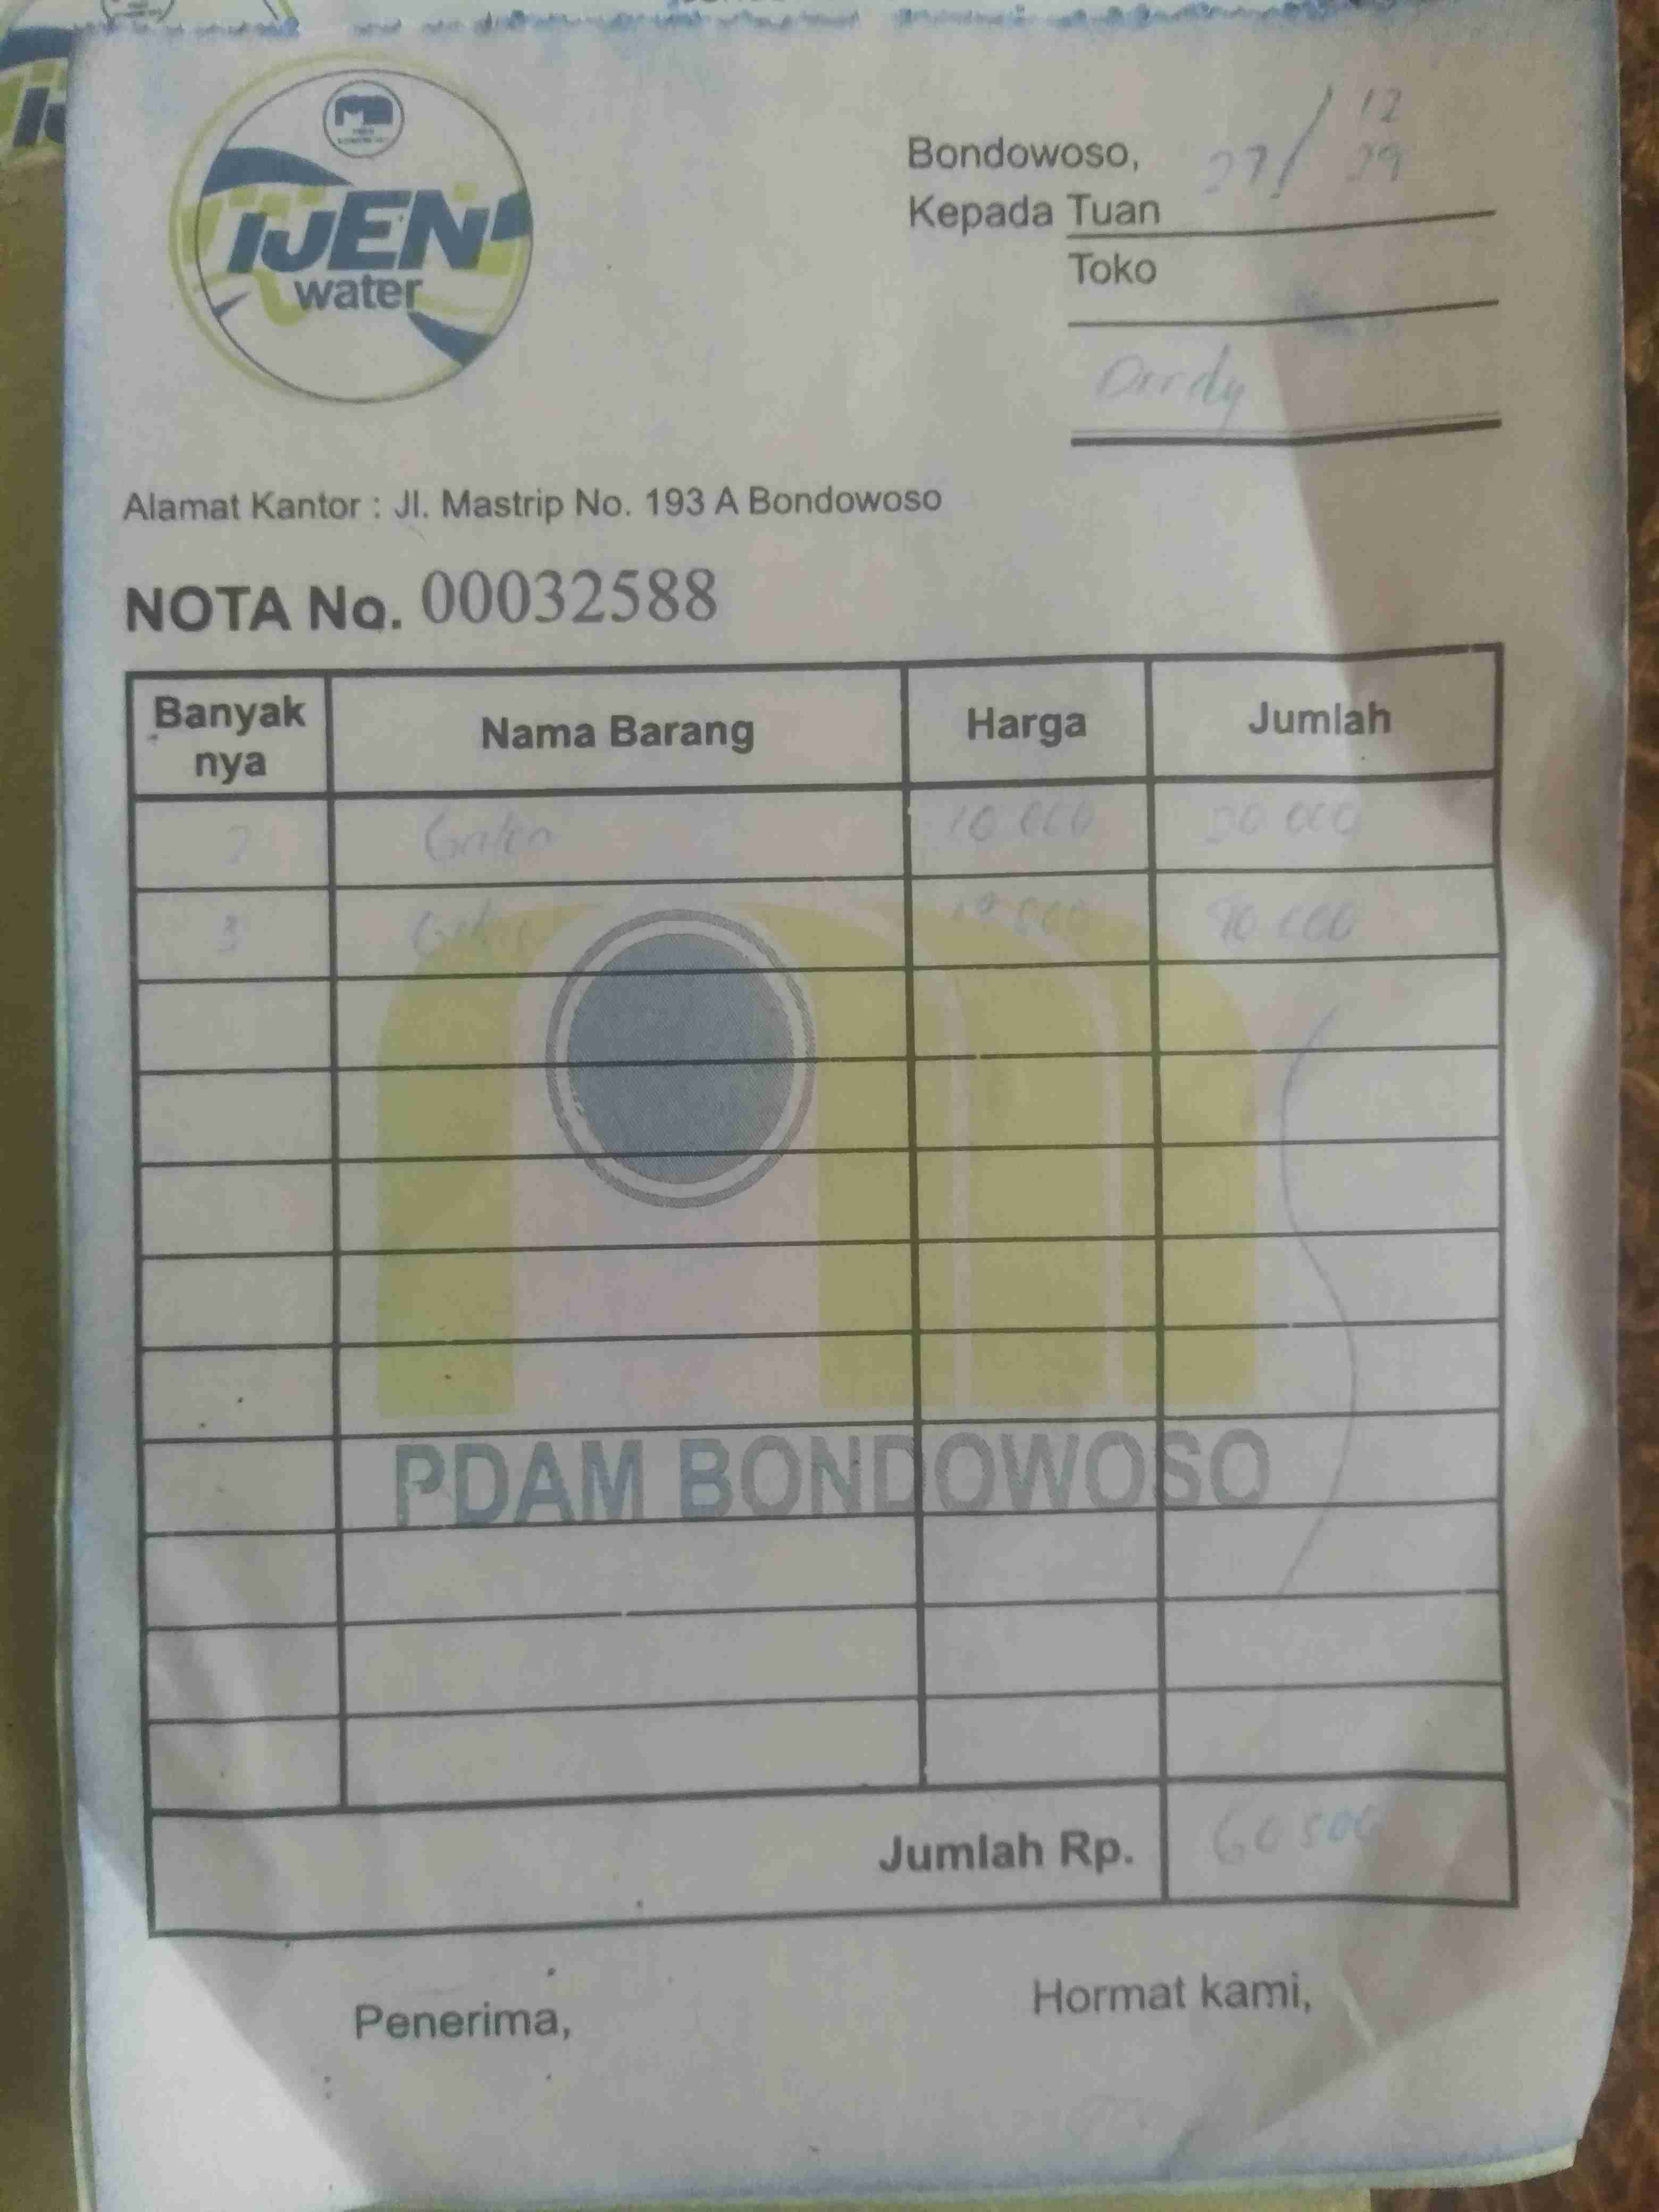 IJEN
water
Bondowoso, 27/12
Kepada Tuan
Toko
Alamat Kantor : Jl. Mastrip No. 193 A Bondowoso
NOTA No. 00032588
Banyak nya Nama Barang Harga Jumlah
2 10 000 20 000
3
PDAM BONDOWOSO
Jumlah Rp. 60 500
Penerima, Hormat kami,